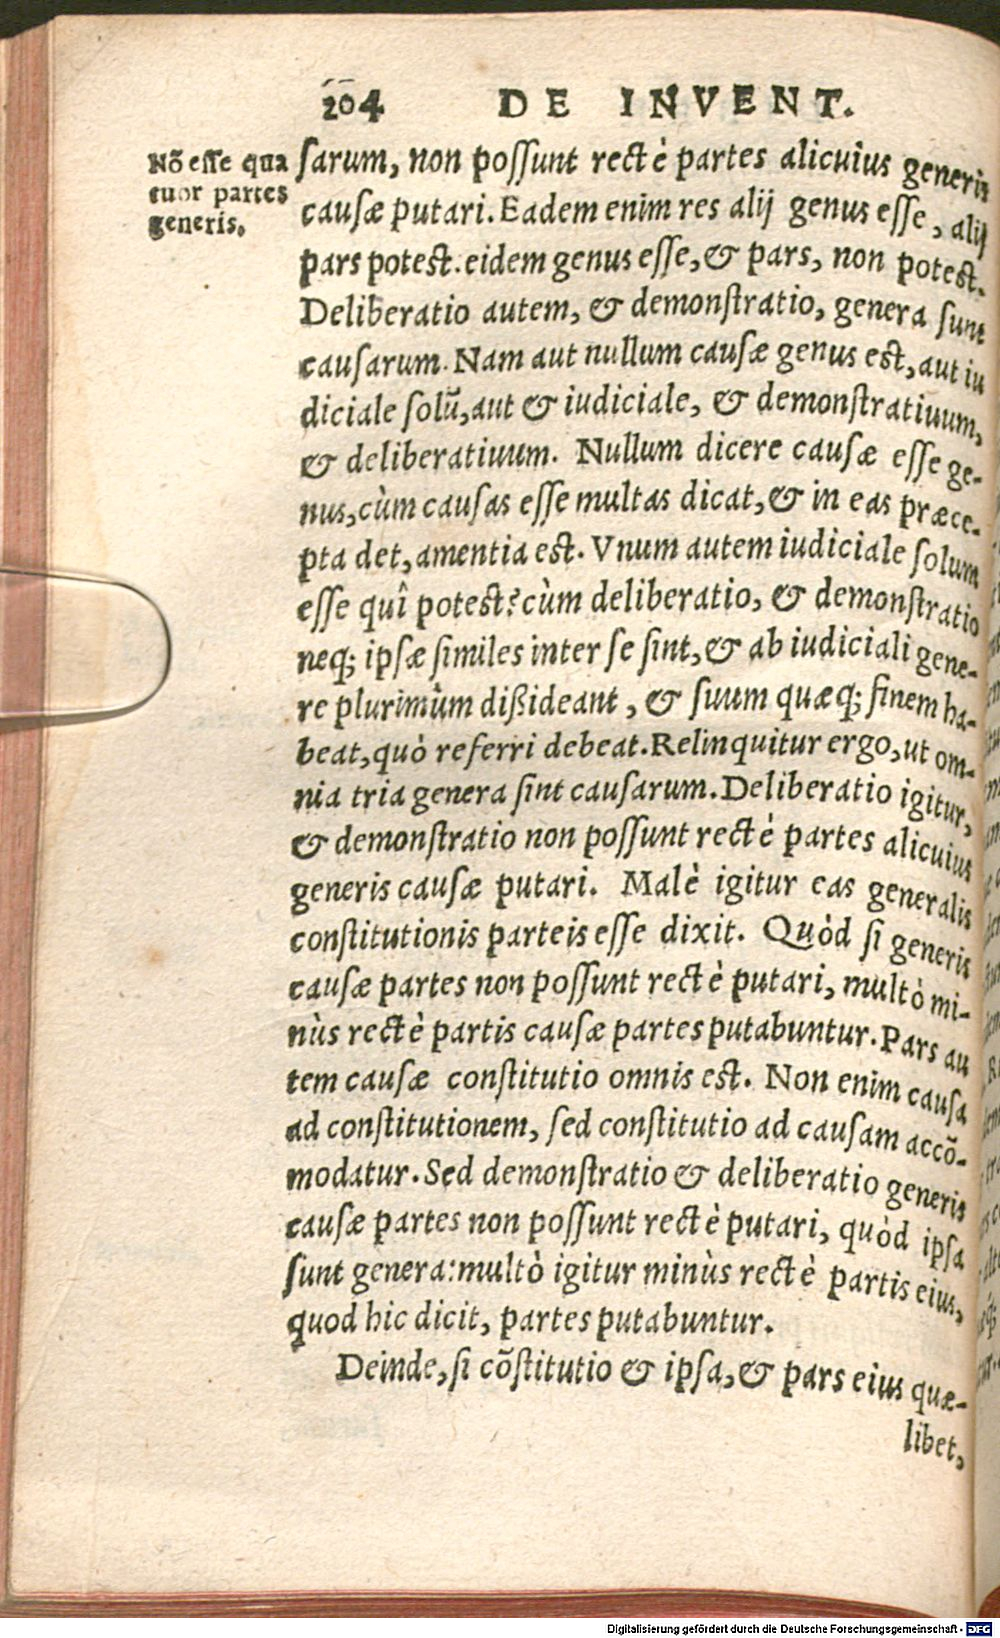 204 DE INVENT.
Nõ esse qua
tuor partes
generis.
sarum, non possunt rectè partes alicuius generis
causæ putari. Eadem enim res alij genus esse, alij
pars potest. eidem genus esse, & pars, non potest.
Deliberatio autem, & demonstratio, genera sunt
causarum. Nam aut nullum causæ genus est, aut iu
diciale solũ, aut & iudiciale, & demonstratiuum,
& deliberatiuum. Nullum dicere causæ esse ge-
nus, cùm causas esse multas dicat, & in eas præce-
pta det, amentia est. Vnum autem iudiciale solum
esse quî potest? cùm deliberatio, & demonstratio
neq; ipsæ similes inter se sint, & ab iudiciali gene-
re plurimùm dißideant, & suum quæq; finem ha-
beat, quò referri debeat. Relinquitur ergo, ut om-
nia tria genera sint causarum. Deliberatio igitur,
& demonstratio non possunt rectè partes alicuius
generis causæ putari. Malè igitur eas generalis
constitutionis parteis esse dixit. Quòd si generis
causæ partes non possunt rectè putari, multò mi-
nùs rectè partis causæ partes putabuntur. Pars au
tem causæ constitutio omnis est. Non enim causa
ad constitutionem, sed constitutio ad causam accõ-
modatur. Sed demonstratio & deliberatio generis
causæ partes non possunt rectè putari, quòd ipsa
sunt genera: multò igitur minùs rectè partis eius,
quod hic dicit, partes putabuntur.
Deinde, si cõstitutio & ipsa, & pars eius quæ-
libet,
Digitalisierung gefördert durch die Deutsche Forschungsgemeinschaft - DFG